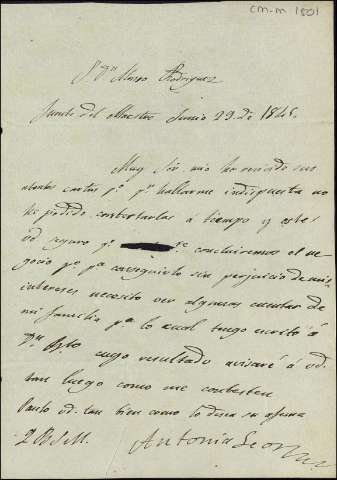 CM-M 1801
Sr Dn Marco Rodriguez
Fuente del Maestre Junio 29 de 1845.
Muy Sr. mio he recivido sus
atentas cartas po. pr. hallarme indispuesta no
he podido contestarlas á tiempo y este
vd seguro qe. concluiremos el ne-
gocio po. pa conseguirlo sin perjuicio de mis
intereses, necesito ver algunas cuentas de
mi familia pa. lo cual tengo escrito á
Dn
cuyo resultado avisaré á vd.
tan luego como me contesten
Pase vd. tan bien como lo desea su afma
Q B S M.
Antonia Leon